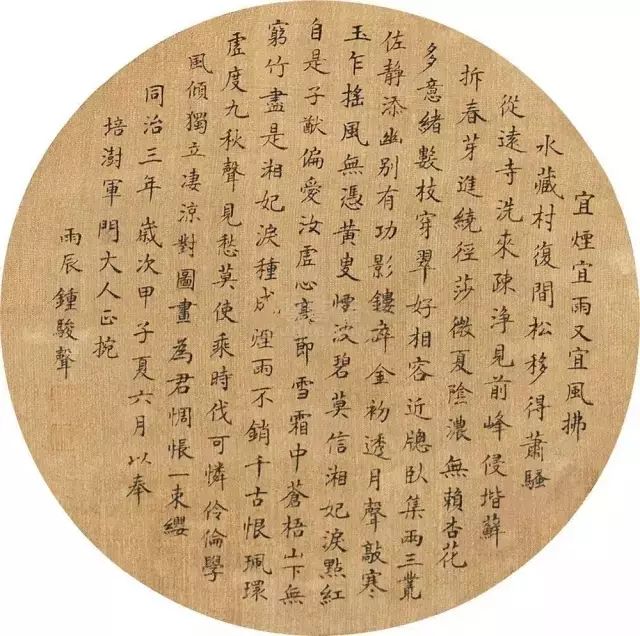 宜煙宜雨又宜風拂
水藏村復間松移得蕭騷
從遠寺洗來疎淨見前峰侵堦蘚
拆春芽迸繞徑莎微夏陰濃無賴杏花
多意緒數枝穿翠好相容近牕臥集兩三叢
佐靜添幽別有功影鏤碎金初透月聲敲寒
玉乍搖風無憑黃叟煙波碧莫信湘妃淚點紅
自是子猷偏愛汝虛心高節雪霜中蒼梧山下無
窮竹盡是湘妃淚種成煙雨不銷千古恨珮環
虛度九秋聲見愁莫使乘時伐可憐伶倫學
鳳傾獨立淒涼對圖畫為君惆悵一束纓
同治三年歲次甲子夏六月以奉
培澍軍門大人正捥
雨辰鍾駿聲